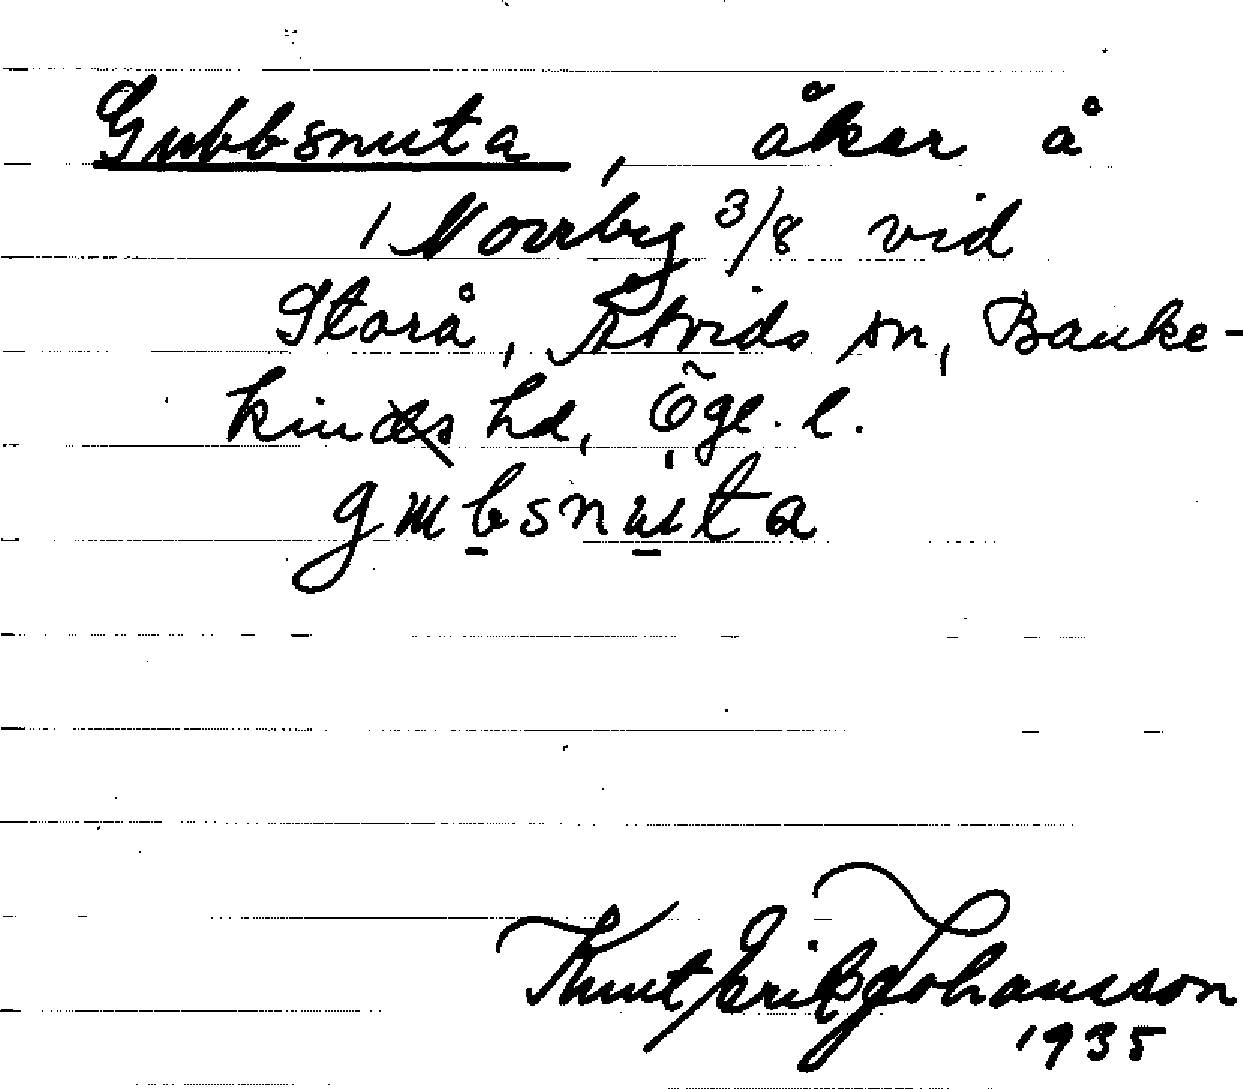 Gubbsnuta, åker å
1 Norrby 3/8 vid
Storå, Åtvids sn, Banke-
kinds hd, Ögl. l.
gubsnuta
Knut Erik Johansson
1935